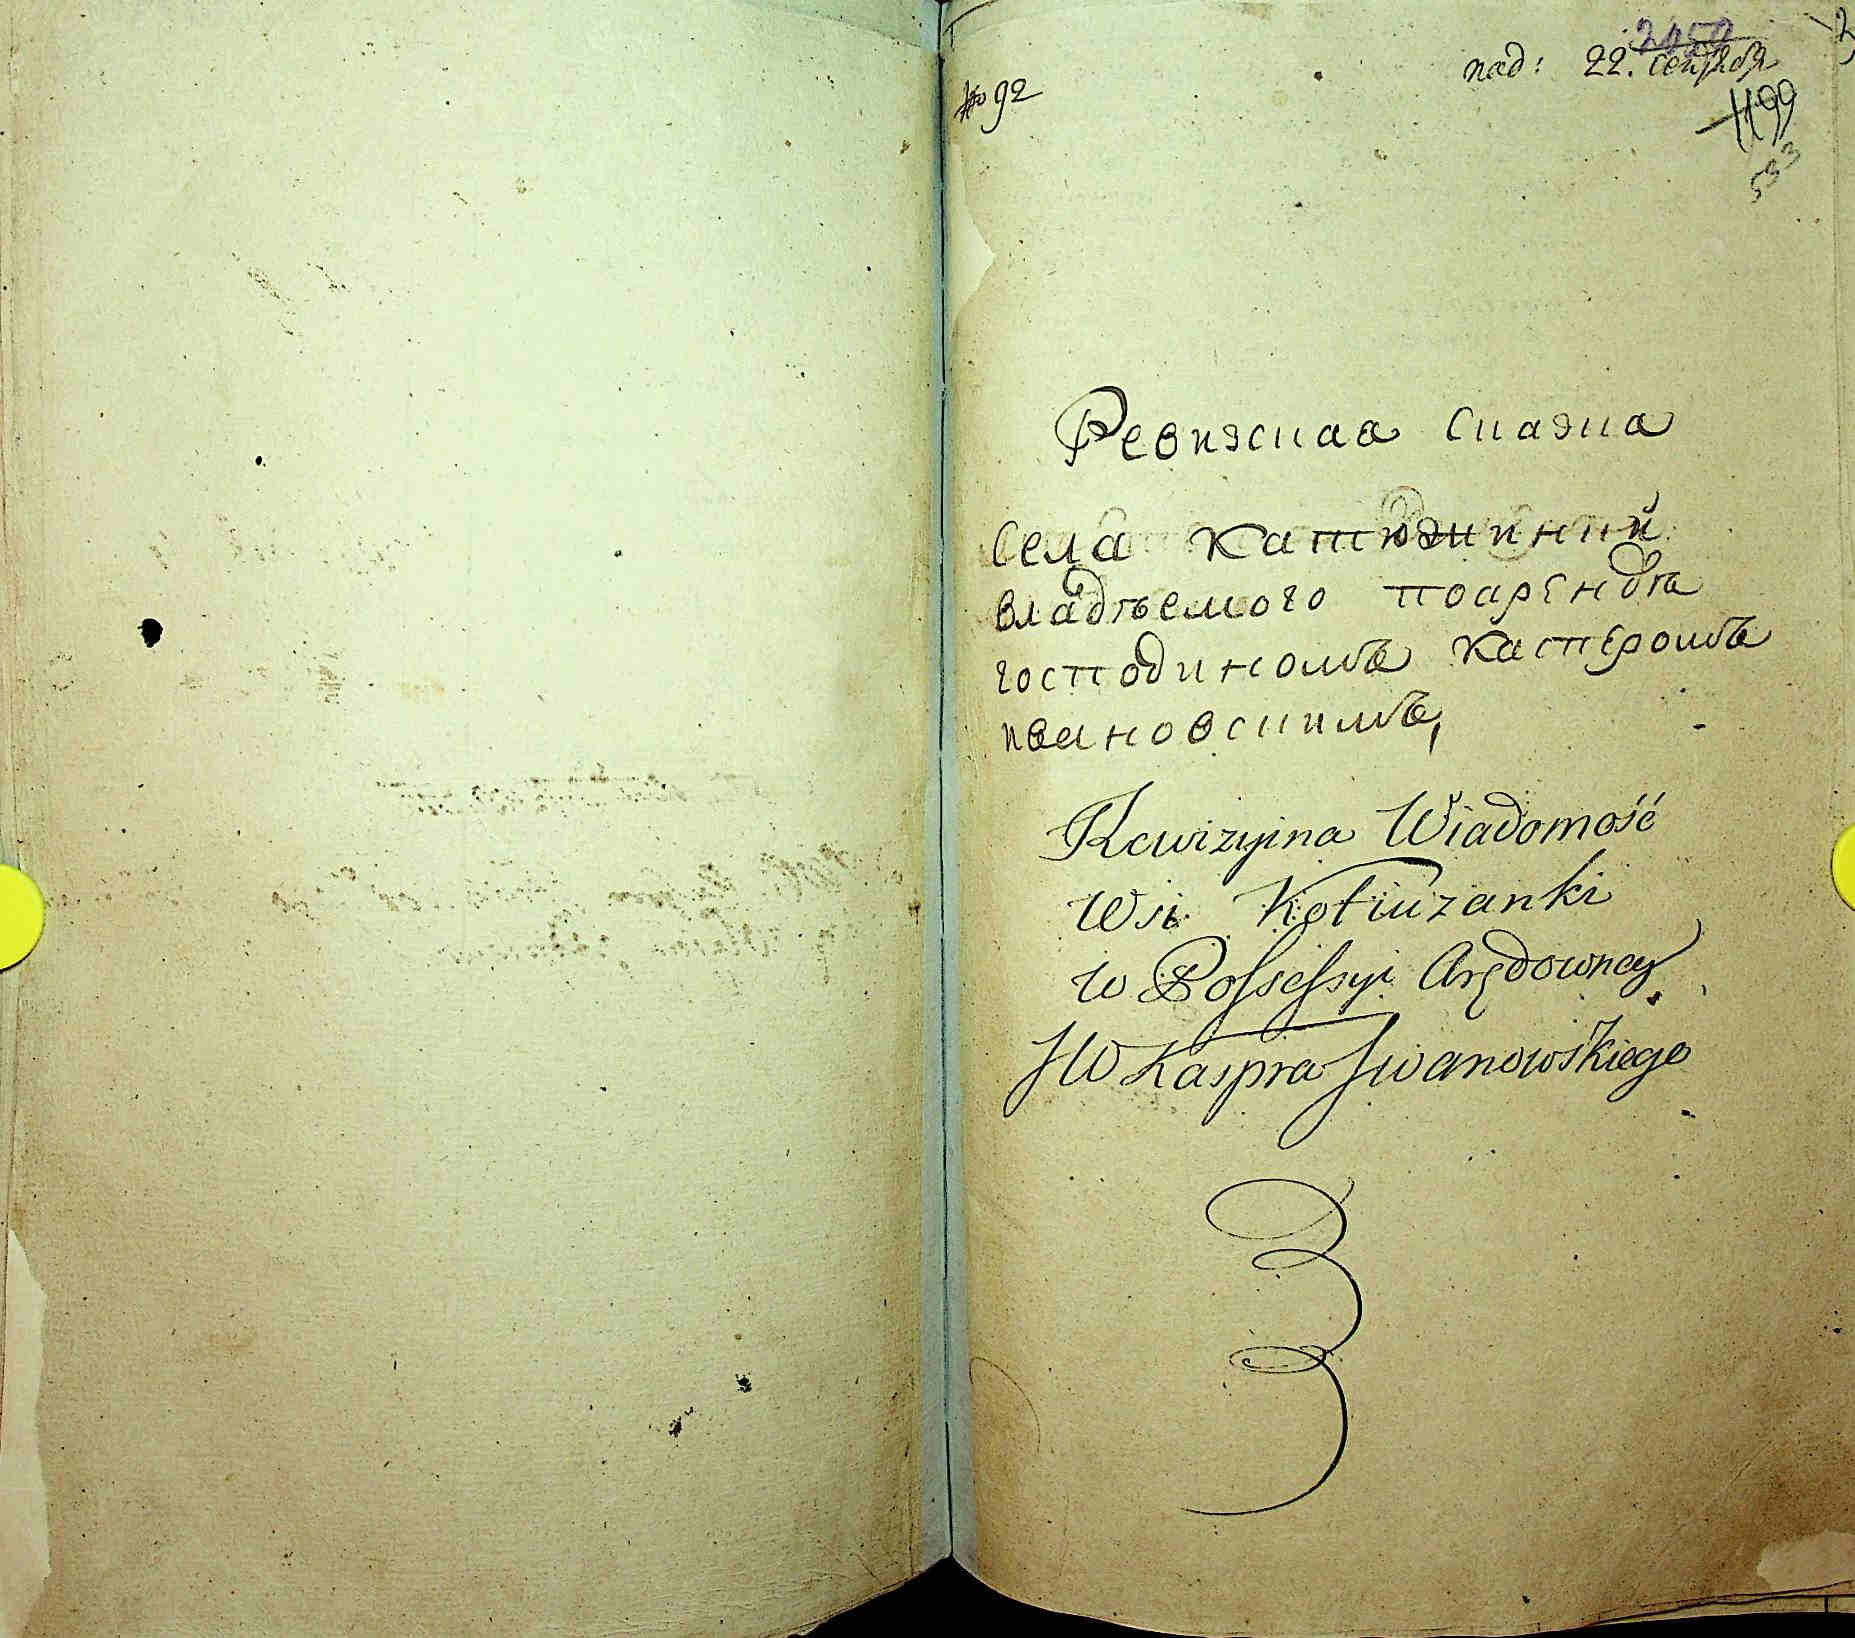 № 92
под: 22. сентября
2050
1199
533
Ревизская сказка
Села Катюжинкий
владѣемого поарендѣ
господиномъ Касперомъ
ивановскимъ,
Rewizyina Wiadomość
Wsi Kotiużanki
w Possessyi Arędowney
JW Kaspra Jwanowskiego